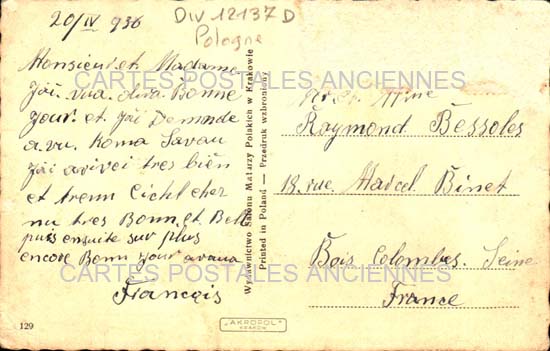 20/IV 936
Div 12137 D
Pologne
Monsieur et Madame
Jái vua diva Bonne
Jour et Jái Demmde
a vu Koma Savau
Jái arivei tres biên
et trenn
nu tres Bonn et Bell
puis ensuite sur plus
encore Bonn Jour avaua
Francęis
CARTES POSTALES ANCIENNES
CARTES POSTALES ANCIENNES
Wydawnictwo Salonu Malarzy Polskich w Krakowie
Printed in Poland — Przedruk wzbroniony
Raymond Bessoles
18. rue. Marcel Binet
Bois Colombes. Seine
France
129
„AKROPOL"
KRAKÓW